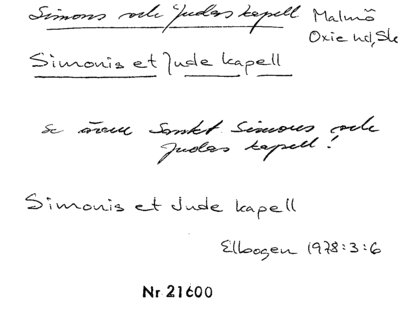 Simons och Judas kapell Malmö
Oxie hd, Sk
Simonis et Jude kapell
se även Sankt Simons och
Judas kapell!
Simonis et Jude kapell
Elbogen 1978:3:6
Nr 21600